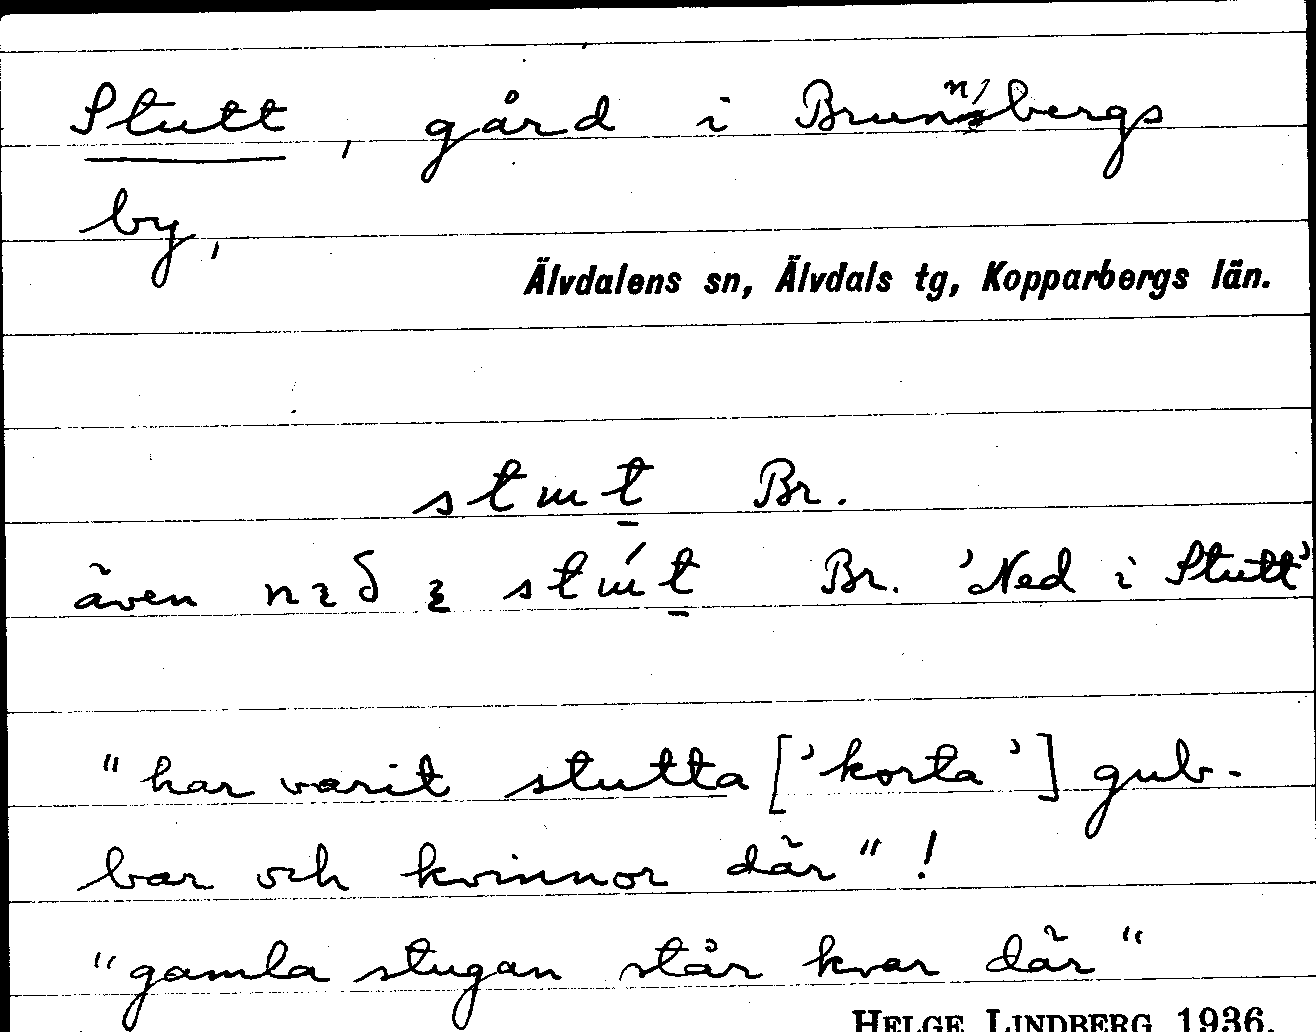 Stutt, gård i Brunnbergs
by,
Älvdalens sn, Älvdals tg, Kopparbergs län.
Br.
även Br. 'Ned i Stutt'
"har varit stutta ['korta'] gub-
bar och kvinnor där"!
"gamla stugan står kvar där"
HELGE LINDBERG 1936.